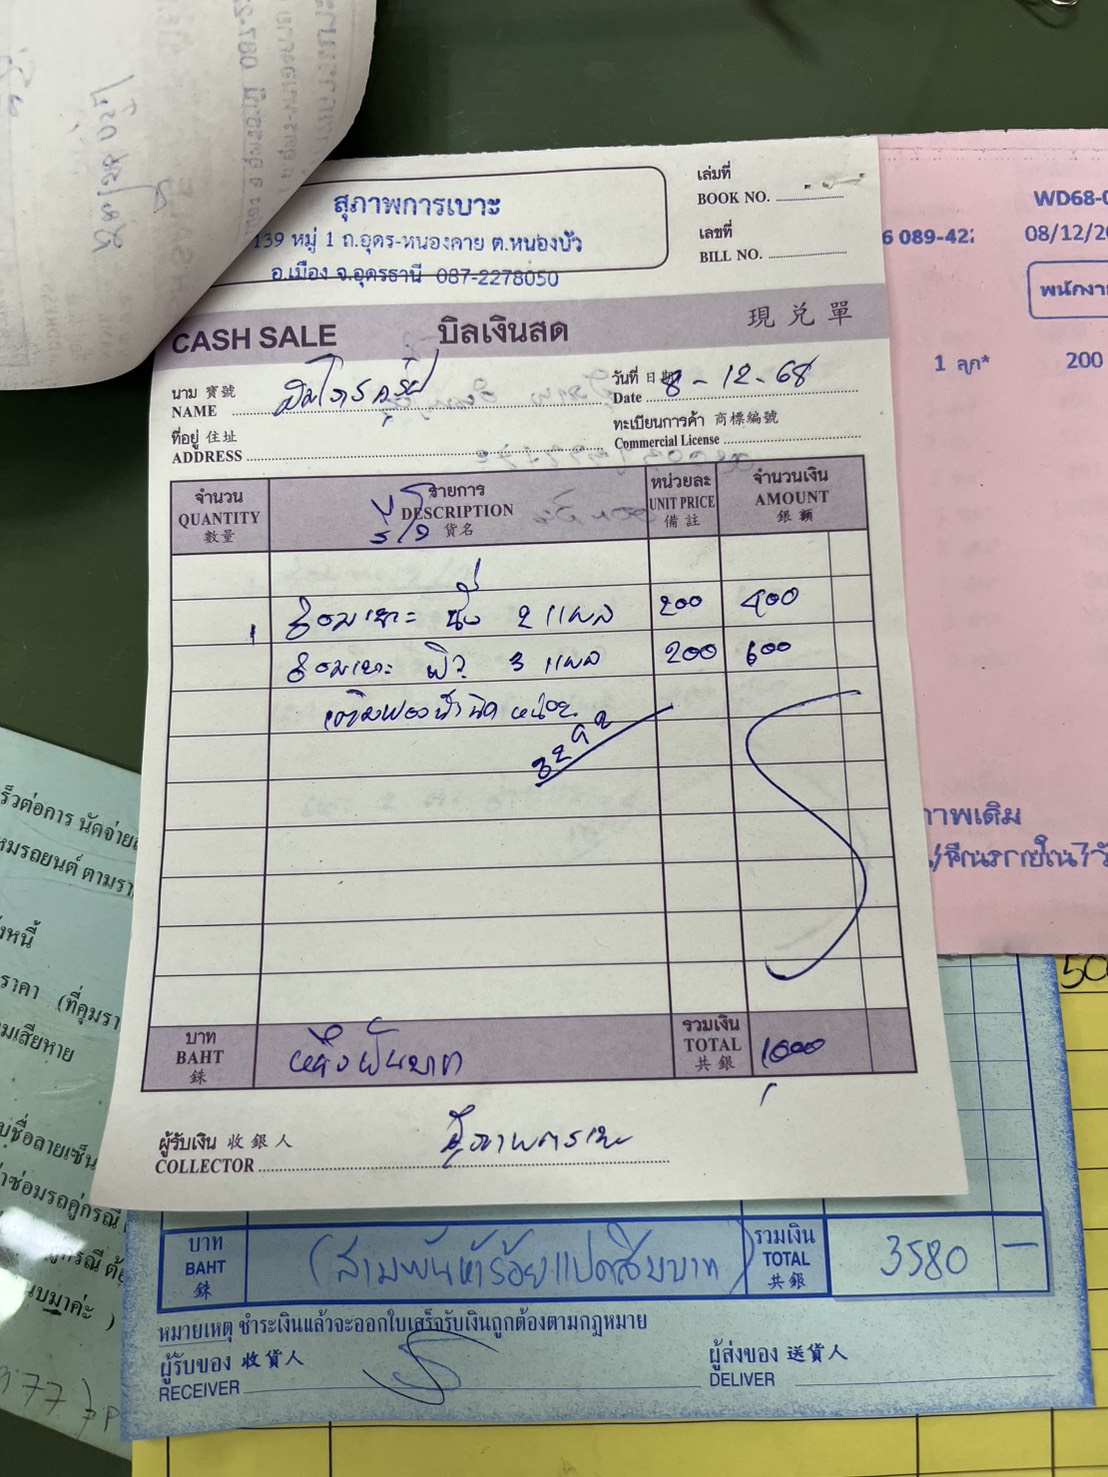 สุภาพการเบาะ
139 หมู่ 1 ถ.อุดร-หนองคาย ต.หนองบัว
อ.เมือง จ.อุดรธานี 087-2278050
เล่มที่
BOOK NO.
เลขที่
BILL NO.
CASH SALE บิลเงินสด 現兌單
นาม 寶號
NAME
วันที่ 日期
Date 8-12-68
ที่อยู่ 住址
ADDRESS
ทะเบียนการค้า 商標編號
Commercial License
จำนวน รายการ หน่วยละ จำนวนเงิน
QUANTITY DESCRIPTION UNIT PRICE AMOUNT
數量 貨名 備註 銀額
ซ่อมเบาะ นั่ง 2 แผล 200 400
ซ่อมเบาะ พิง 3 แผล 200 600
เสริมฟองน้ำนิดหน่อย
3292
บาท
BAHT
銖
หนึ่งพันบาท
รวมเงิน
TOTAL 1000
共銀
ผู้รับเงิน 收銀人
COLLECTOR
สุภาพการเบาะ
WD68-0
6 089-422
08/12/2
พนักงา
1 ลูก* 200
าพเดิม
50
ร็วต่อการ นัดจ่าย
มรถยนต์ ตามรา
ังหนี้
ราคา (ที่คุมรา
มเสียหาย
บชื่อลายเซ็น
่าซ่อมรถคู่กรณี
ู่กรณี ต้อ
นบมาค่ะ )
บาท
BAHT
銖
(สามพันห้าร้อยแปดสิบบาท)
รวมเงิน
TOTAL 3580 —
共銀
หมายเหตุ ชำระเงินแล้วจะออกใบเสร็จรับเงินถูกต้องตามกฎหมาย
ผู้รับของ 收貨人
RECEIVER
ผู้ส่งของ 送貨人
DELIVER